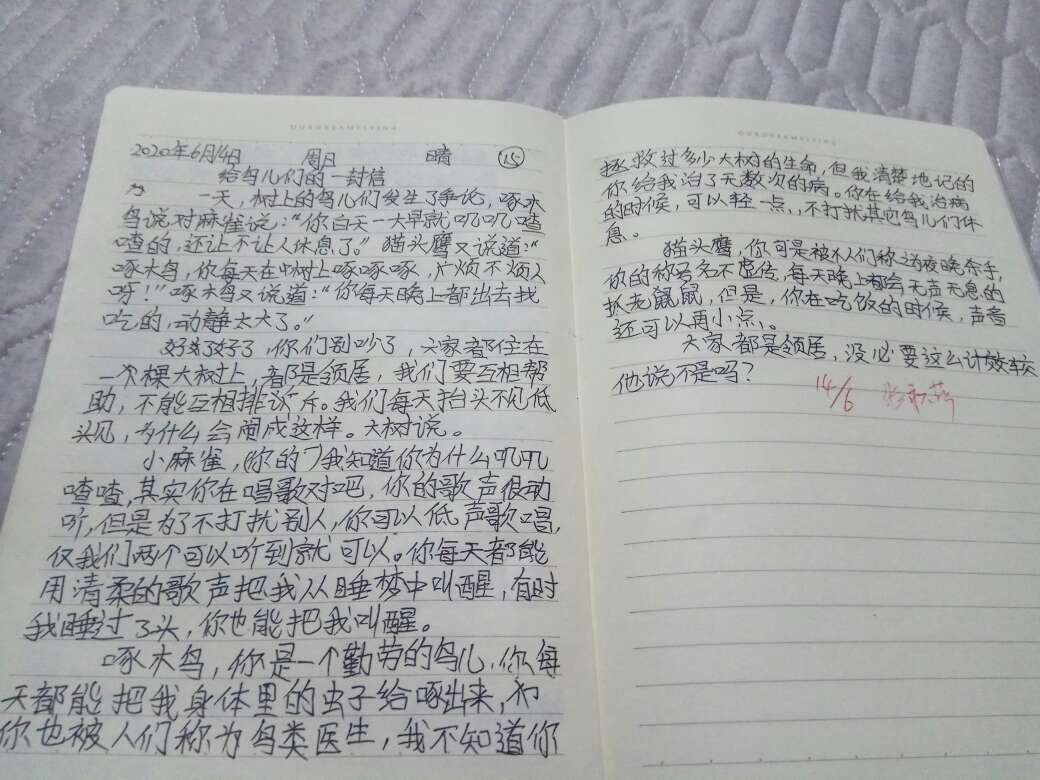 OURDREAMFLYING
2020年6月14日 周日 晴 15
给鸟儿们的一封信
一天，树上的鸟儿们发生了争论，啄木
鸟说对麻雀说：“你白天一大早就叽叽喳
喳的，还让不让人休息了。”猫头鹰又说道：“
啄木鸟，你每天在树上啄啄啄，烦不烦人
呀！”啄木鸟又说道：“你每天晚上都出去找
吃的，动静太大了。”
好了好了，你们别吵了，大家都住在
一个棵大树上，都是领居，我们要互相帮
助，不能互相排斥。我们每天抬头不见低
头见，为什么会闹成这样。大树说。
小麻雀，（你的）我知道你为什么叽叽
喳喳，其实你在唱歌对吧，你的歌声很动
听，但是为了不打扰别人，你可以低声歌唱，
仅我们两个可以听到就可以。你每天都能
用清柔的歌声把我从睡梦中叫醒，有时
我睡过了头，你也能把我叫醒。
啄木鸟，你是一个勤劳的鸟儿，你每
天都能把我身体里的虫子给啄出来，
你也被人们称为鸟类医生，我不知道你
OURDREAMFLYING
拯救过多少大树的生命，但我清楚地记的
你给我治了无数次的病。你在给我治病
的时候，可以轻一点，不打扰其它鸟儿们休
息。
猫头鹰，你可是被人们称为夜晚杀手，
你的称号名不虚传，每天晚上都会无声无息的
抓老鼠，但是，你在吃饭的时候，声音
还可以再小点。
大家都是领居，没必要这么计较
他说不是吗？
14/6